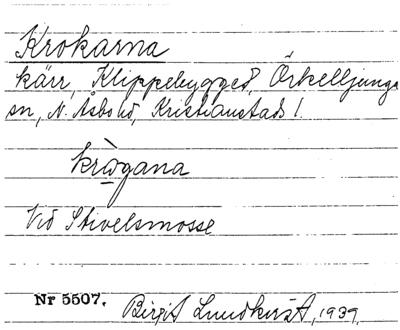 Krokarna
kärr, Klippebygget, Örkelljunga
sn, N. Åsbo hd, Kristianstads l.
krògana
Vid Stivelsmosse
Nr 5507. Birgit Lundkvist, 1939.